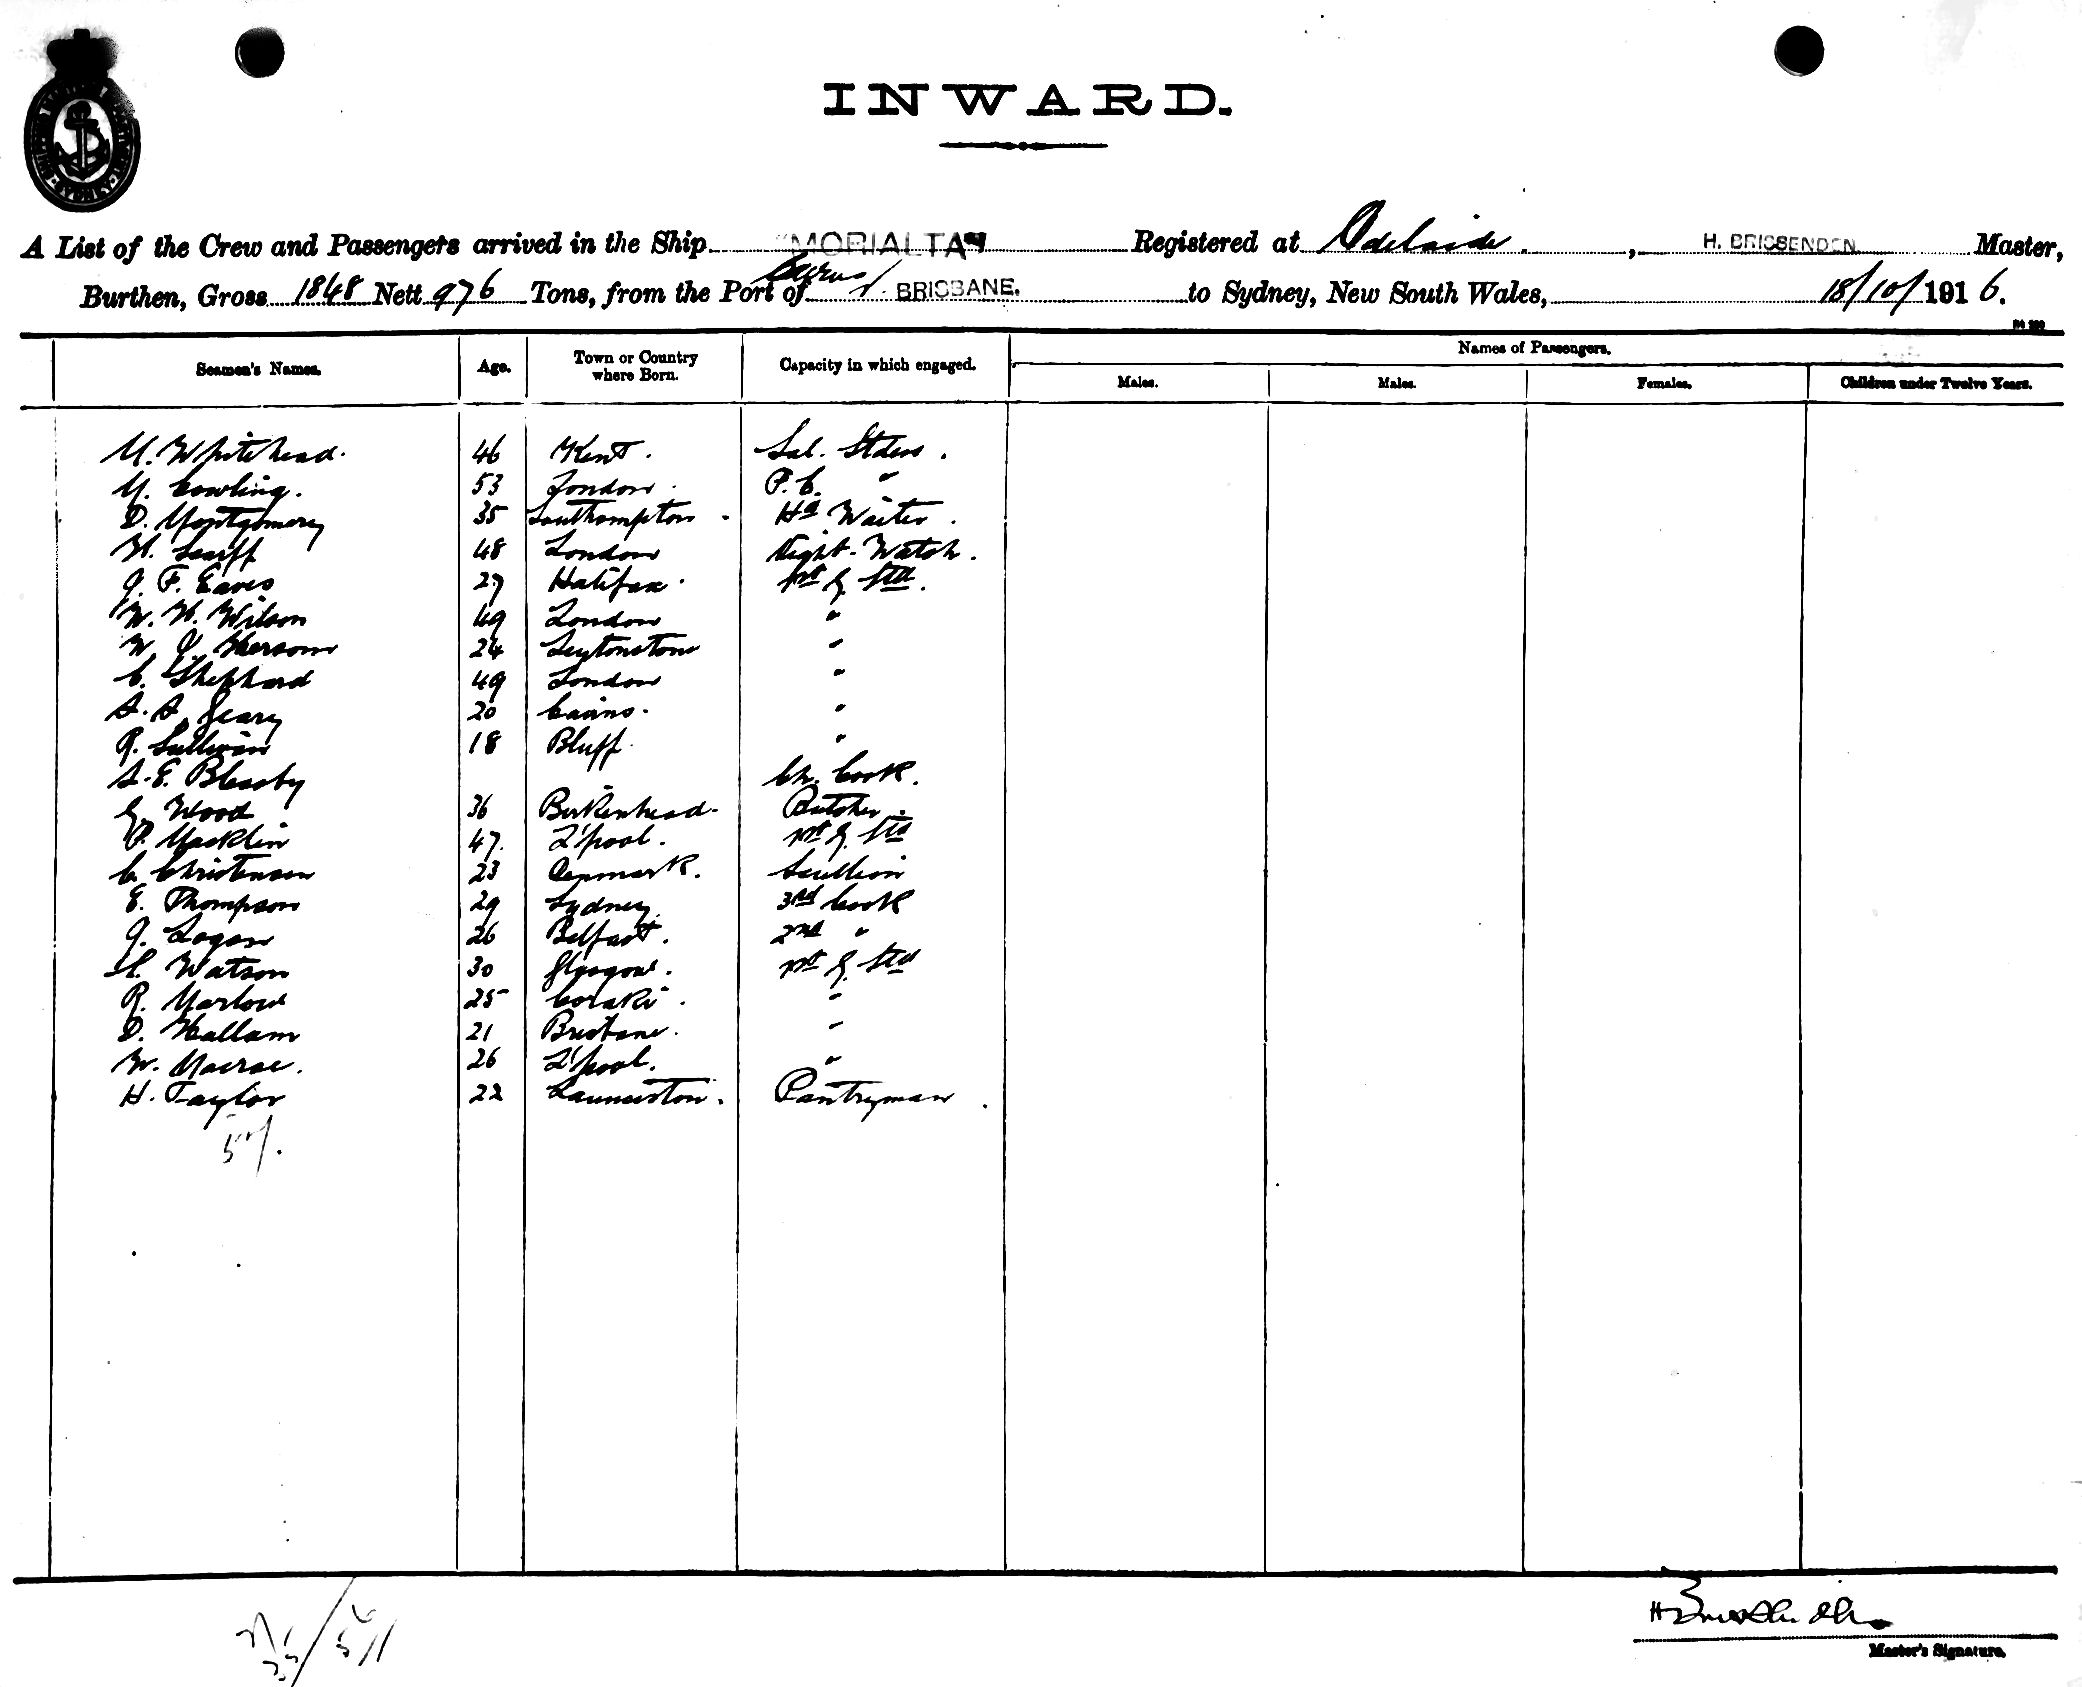 INWARD.
A List of the Crew and Passengers arrived in the Ship "MORIALTA" Registered at Adelaide, H. BRISSENDEN Master,
Burthen, Gross 1848 Nett 976 Tons, from the Port of Cairns &. BRISBANE. to Sydney, New South Wales, 18/10/1916.
Names of Passengers.
Seamen's Names. Age. Town or Country where Born. Capacity in which engaged. Males. Males. Females. Children under Twelve Years.
M. Whitehead. 46 Kent. Sal. Stdess.
M. Cowling. 53 London. F.C. "
D. Montgomery 35 Southampton. Hd Waiter.
W. Scarff 48 London Night-Watch.
J. F. Eaves 27 Halifax. 1st G. Std.
W. H. Wilson 49 London "
W. J. Hersom 24 Leytonstone "
C. Shephard 49 London "
A. A. Geary 20 Cairns. "
R. Sullivan 18 Bluff. "
A. E. Bleasby Ch. Cook.
G. Wood 36 Birkenhead. Butcher.
P. Macklin 47. L'pool. 1st G. Std
C. Christensen 23 Denmark. Scullion
E. Thompson 29 Sydney. 3rd Cook
J. Logan 26 Belfast. 2nd "
H. Watson 30 Glasgow. 1st G. Std
R. Marlow 25 Coraki. "
D. Hallam 21 Brisbane. "
W. Macrae. 26 L'pool. "
H. Taylor 22 Launceston. Pantryman.
Master's Signature.